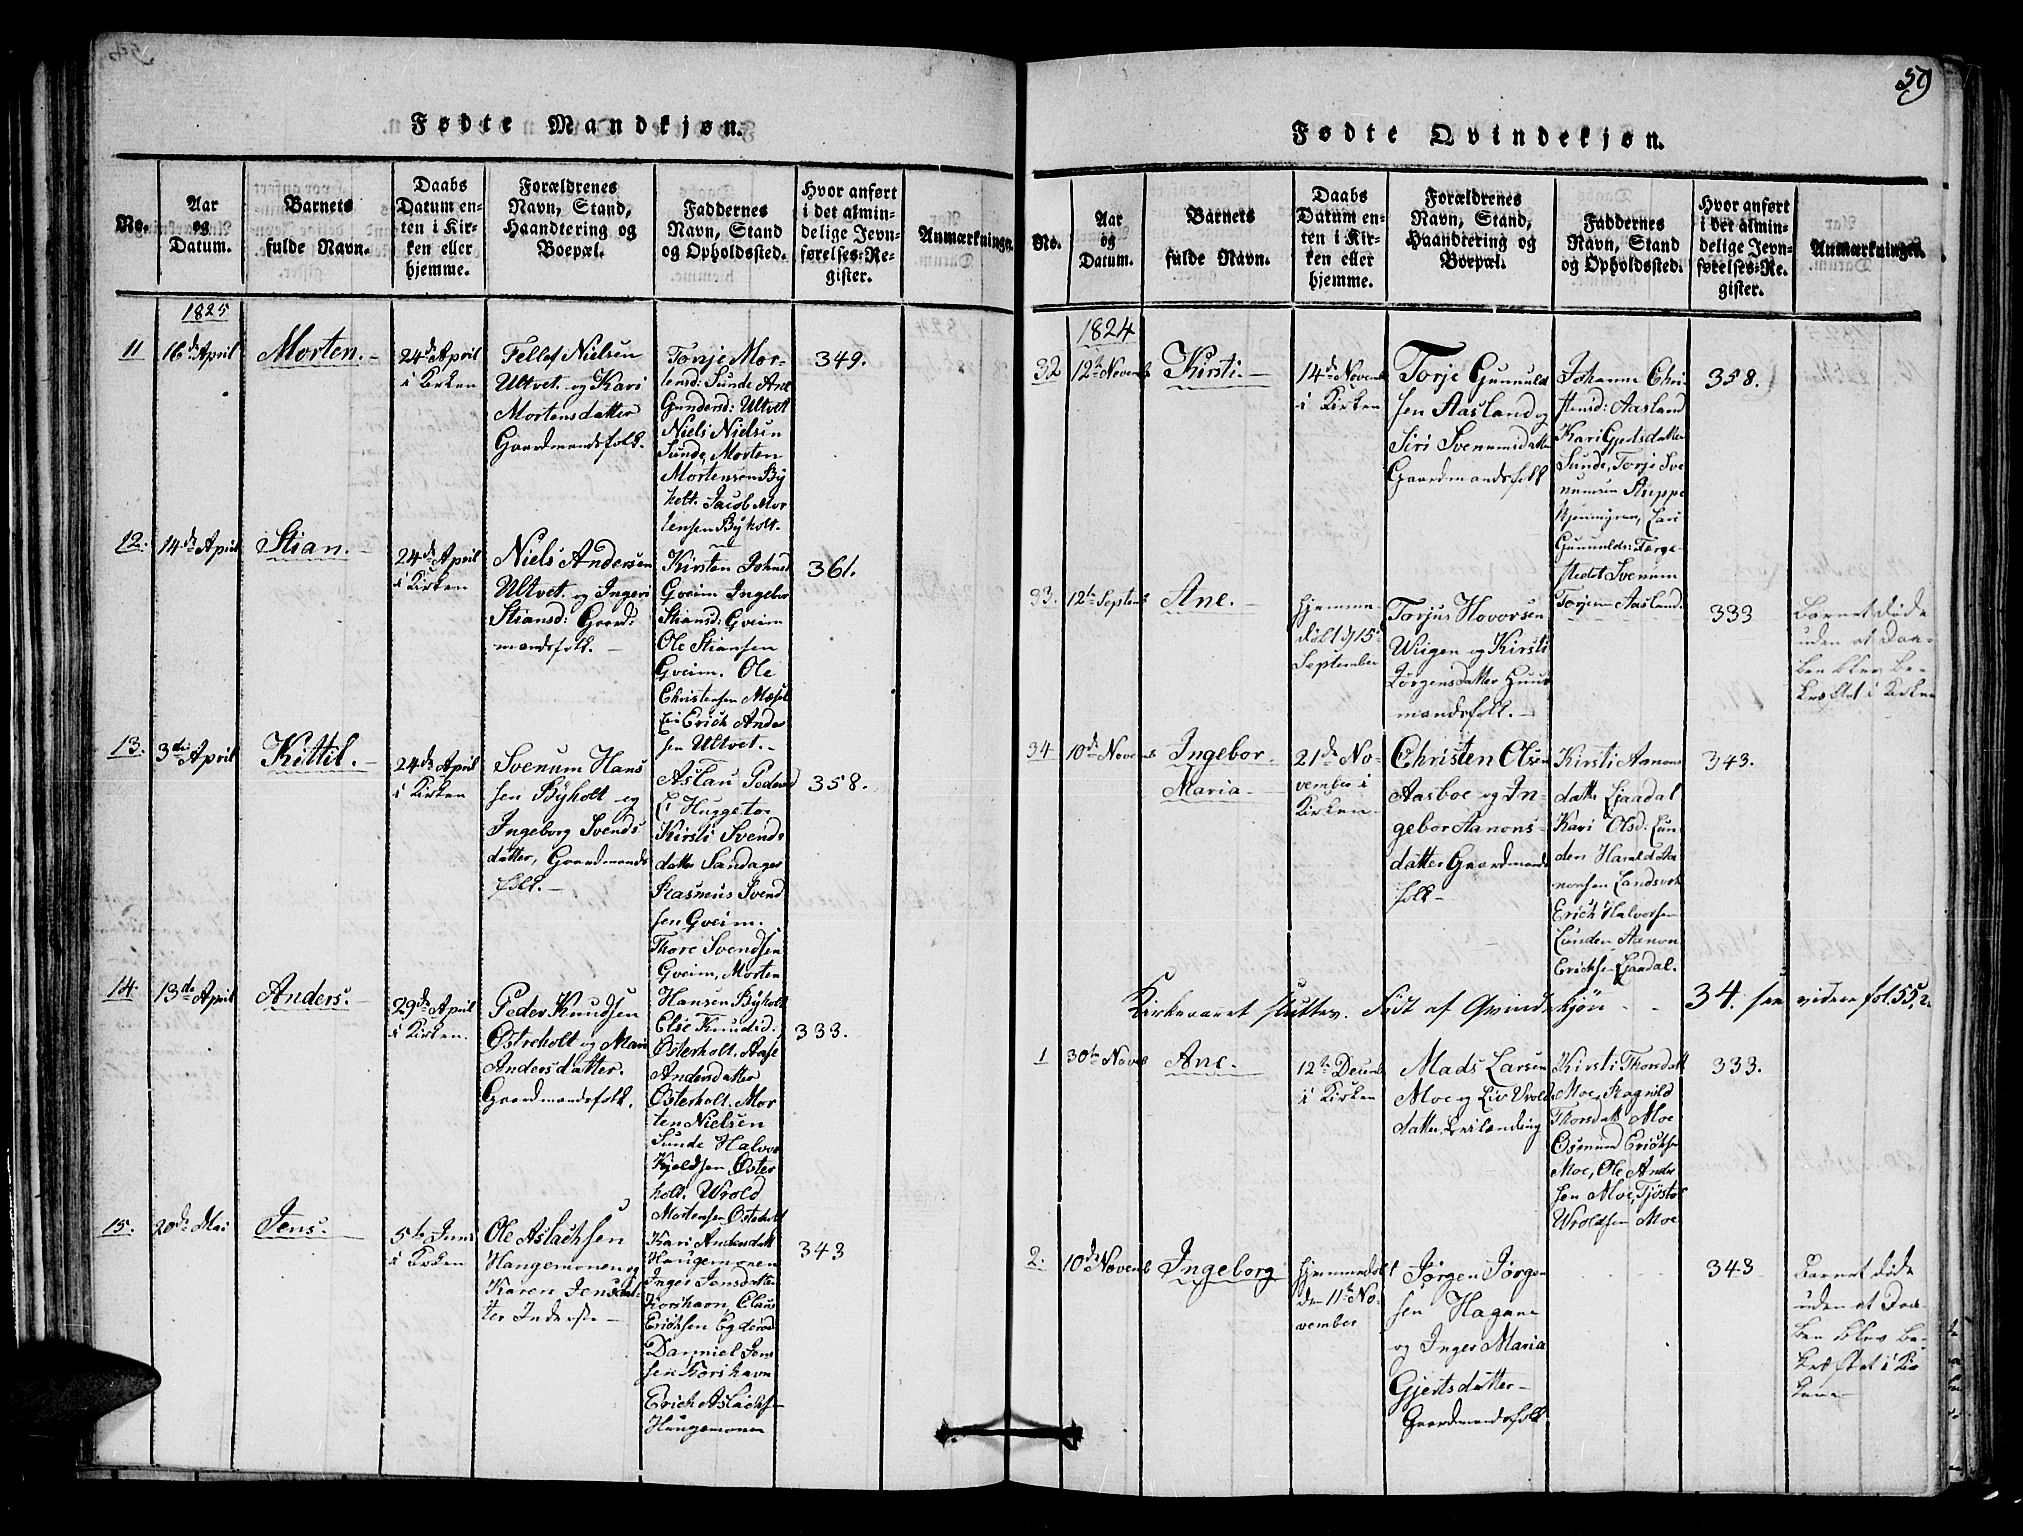 Fødte Mandkjøn.
No.
Aar
og
Datum.
Barnets
fulde Navn.
Daabs
Datum en-
ten i Kir-
ken eller
hjemme.
Forældrenes
Navn, Stand,
Haandtering og
Boepæl.
Faddernes
Navn, Stand
og Opholdssted.
Hvor anført
i det almin-
delige Jevn-
førelses-Re-
gister.
Anmærkninger.
1825
11
16de April
Morten.
24de April
i Kirken
Nielsen
Ultvet og Kari
Mortensdatter
Gaardmandsfolk.
Torje Mor-
tensd: Sunde Ane
Gundersd: Ultvett
Niels Nielsen
Sunde, Morten
Mortensen By
holt. Jacob Mor
tensen Byholt.
349.
12.
14de April
Stian.
24de April
i Kirken
Niels Andersen
Ultvet og Ingeri
Stiansd: Gaard-
mandsfolk.
Kirsten
Gveim Ingebor
Stiansd: Gveim
Ole Stiansen
Gveim. Ole
Christensen
Erich Ander
sen Ultvet.
361.
13.
3de April
Kittil.
24de April
i Kirken
Svenum Hans
sen Byholt og
Ingeborg Svends
datter, Gaardmands
folk.
Aslau Peders
Huggeto.
Kirsti Svends
datter Sandager
Rasmus Svend
sen Gveim.
Thore Svendsen
Gveim, Morten
Hansen Byholt
358.
14.
13de April
Anders.
29de April
i Kirken.
Peder Knudsen
Østreholt og Mari
Andersdatter.
Gaardmandsfolk.
Else Knudsd.
Østerholt. Aase
Andersdatter
Østerholt. Mor
ten Nielsen
Sunde Halvor
Kjeldsen Øster
holt. Wrold
Mortensen Østerholt
333.
15.
20de Mai
Jens.
5te Juni
i Kirken
Ole Aslachsen
Haugemonen og
Karen Jensdat-
ter Inderste
Kari Andersdatt
Haugemonen
Inger Jensdatter
Korshavn, Claus
Erichsen
Danniel Jens
sen Korshavn
Erich Aslachs-
Haugemonen
343
59
Fødte Qvindekjøn.
No.
Aar
og
Datum.
Barnets
fulde Navn.
Daabs
Datum en-
ten i Kir-
ken eller
hjemme.
Forældrenes
Navn, Stand,
Haandtering og
Boepæl.
Faddernes
Navn, Stand
og Opholdssted.
Hvor anført
i det almin-
delige Jevn-
førelses-Re-
gister.
Anmærkninger.
1824
32
12te Novemb
Kirsti.
14de Novemb
i Kirken
Torje Gunnuld
sen Aasland og
Siri Svenumsdatter
Gaardmandsfolk
Johanne Chri
stensd: Aasland
Kari Gjertsdatter
Sunde, Torje Sve
numsen
Svenum
Torjesen Aasland.
358.
33.
12te Septemb
Ane.
hjemme-
døbt d 15
September
Torjus Hovorsen
Wiigen og Kirsti
Jørgensdatter Huus
mandsfolk.
333
Barnet døde
uden at Daa-
ben blev be-
kræftet i Kirken
34
10de Novemb
Ingebor
Maria.
21de No-
vember i
Kirken
Christen Olsen
Aasboe og In-
gebor Aanons-
datter Gaardmands
folk
Kirsti Aanons
datter Ljaadal
Kari Olsd. Lun-
den Harald Aa-
nonsen Landsverk
Erich Halvorsen
Lunden Aanon
Erichsen Ljaadal.
343.
Kirkeaaret sluttes. Født af Qvindekjøn - - 34. see videre fol. 55,2.
1
30te Novemb
Ane.
12te Decemb
i Kirken
Mads Larsen
Moe og Liv Wrolds
datter,
Kirsti Thorsdatt
Moe, Ragnild
Thorsdatt Moe
Osmund Erichsen
Moe, Ole Ander
sen Moe, Tjøstol
Wroldsen Moe
333.
2.
10de Novemb
Ingeborg
hjemmedøbt
den 11te No-
vember
Jørgen Jørgen
sen Hagane
og Inger Maria
Gjertsdatter
Gaardmandsfolk
343
Barnet døde
uden at Daa-
ben blev be-
kræftet i Kir
kene